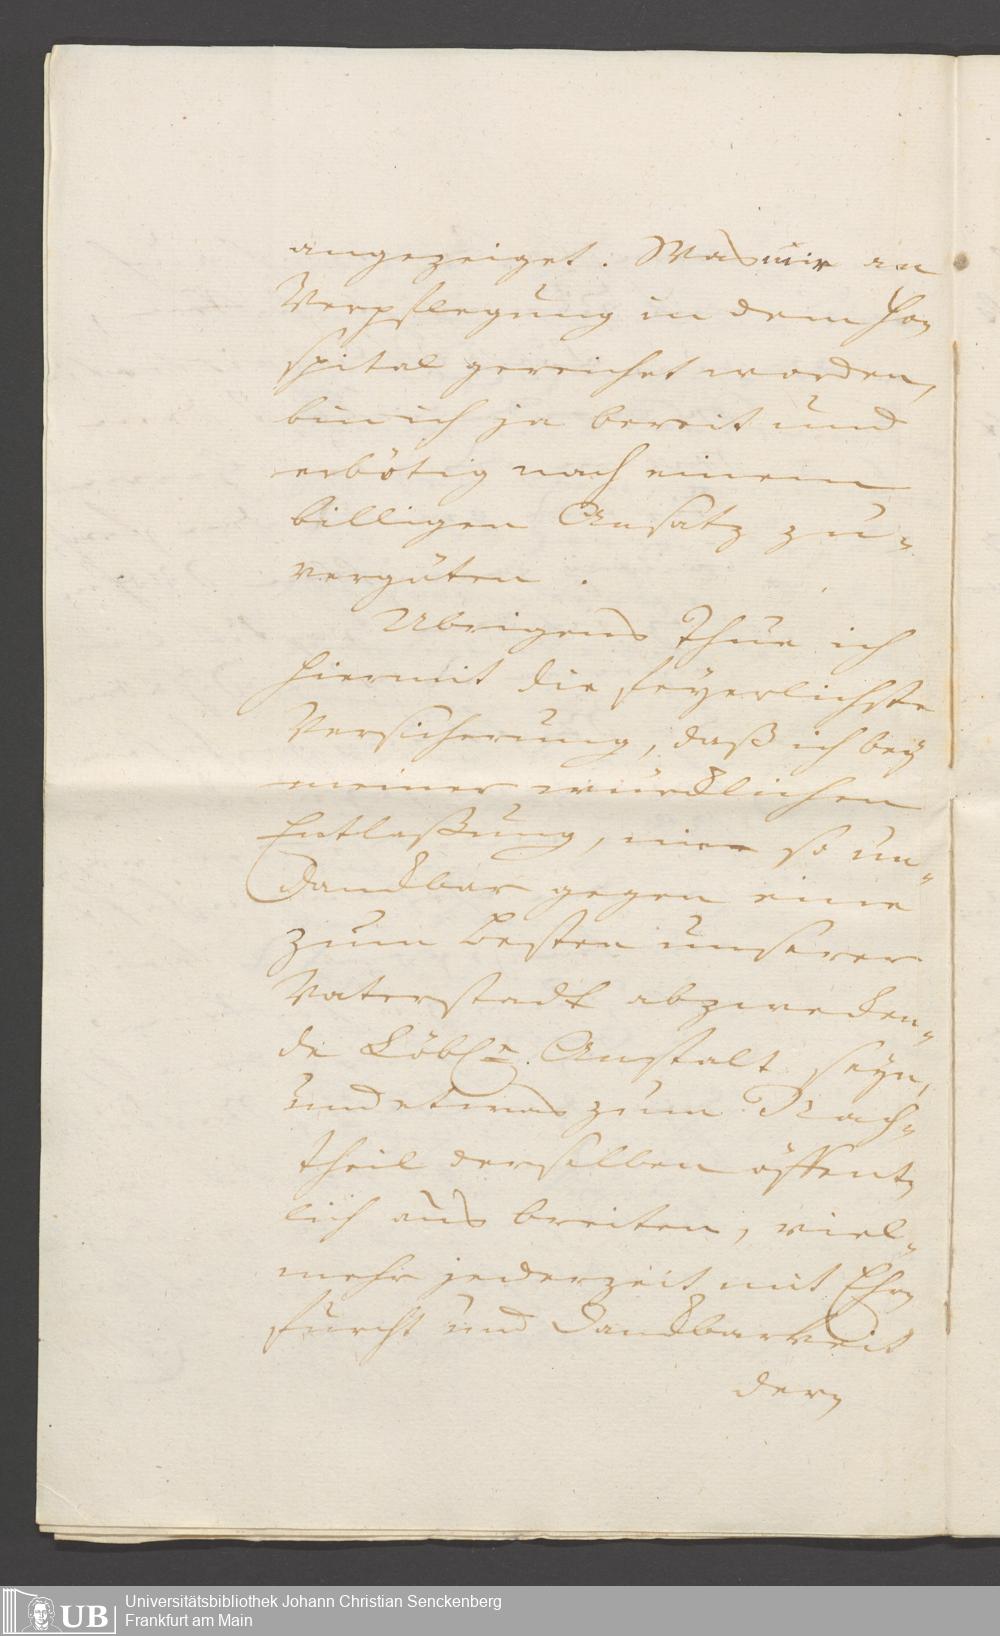 angezeiget. Was mir an
Verpflegung in dem Ho-
spital gereichet worden,
bin ich ja bereit und
erbötig nach einem
billigen Ansatz zu-
vergüten.
Ubrigens thue ich
hiermit die feyerlichste
Versicherung, daß ich bey
meiner würcklichen
Entlaßung, nie so un-
danckbar gegen eine
zum besten unserer
Vaterstadt abzwecken-
de Löbl. Anstalt seyn,
und etwas zum Nach-
theil derselben öffent-
lich aus breiten, viel-
mehr jederzeit mit Ehr-
furcht und Danckbarkeit
der-
UB Universitätsbibliothek Johann Christian Senckenberg
Frankfurt am Main